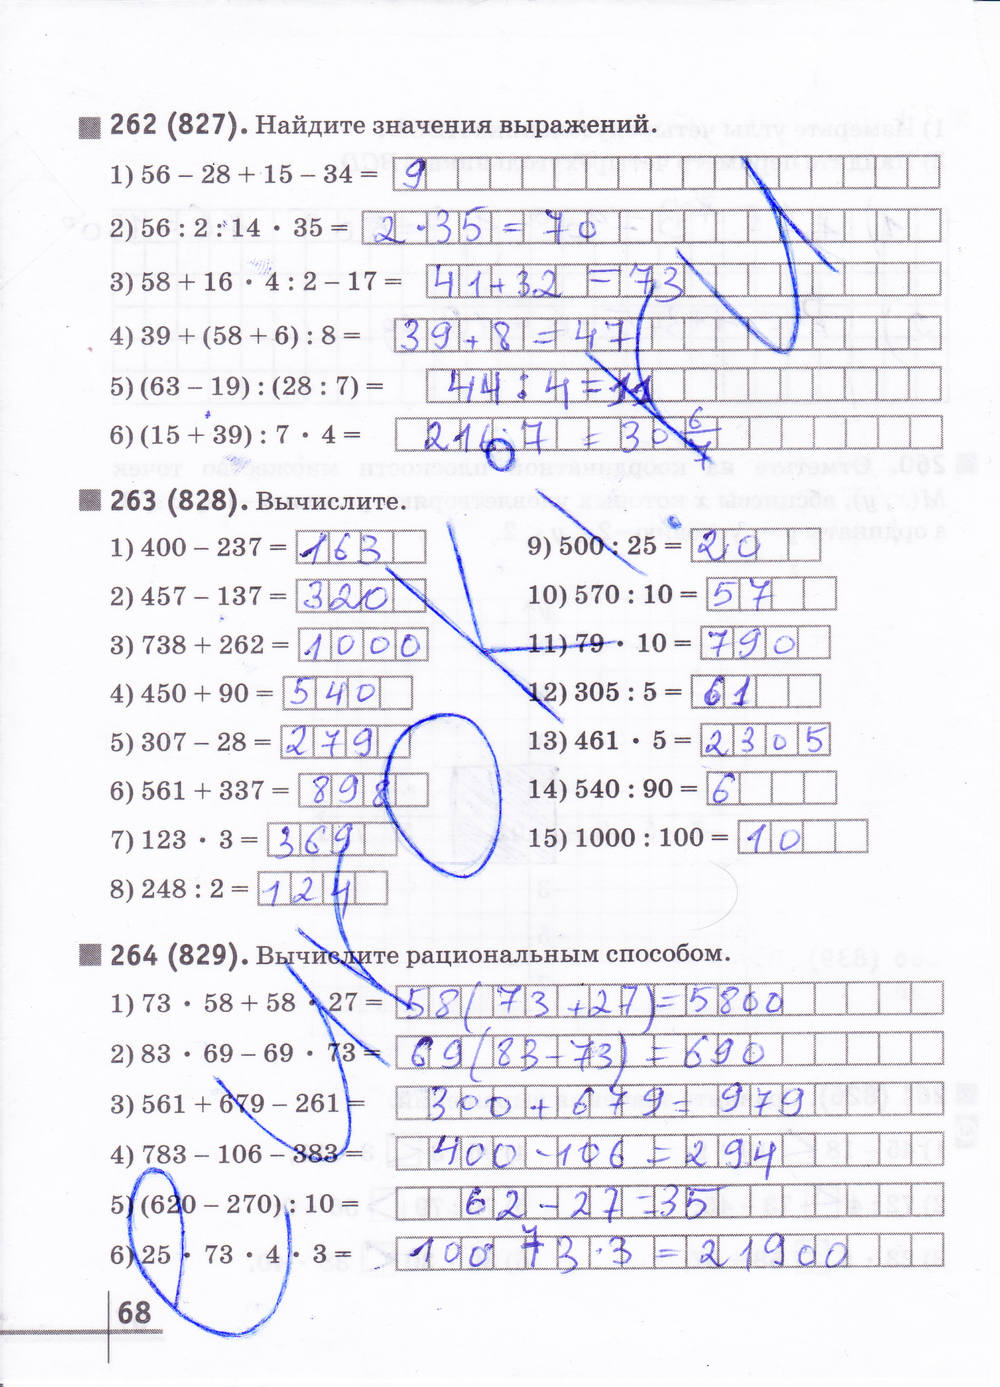 262 (827). Найдите значения выражений.
1) 56 – 28 + 15 – 34 = 9
2) 56 : 2 : 14 · 35 = 2 · 35 = 70
3) 58 + 16 · 4 : 2 – 17 = 41 + 32 = 73
4) 39 + (58 + 6) : 8 = 39 + 8 = 47
5) (63 – 19) : (28 : 7) = 44 : 4 = 11
6) (15 + 39) : 7 · 4 = 216 : 7 = 30 6/7
263 (828). Вычислите.
1) 400 – 237 = 163
2) 457 – 137 = 320
3) 738 + 262 = 1000
4) 450 + 90 = 540
5) 307 – 28 = 279
6) 561 + 337 = 898
7) 123 · 3 = 369
8) 248 : 2 = 124
9) 500 : 25 = 20
10) 570 : 10 = 57
11) 79 · 10 = 790
12) 305 : 5 = 61
13) 461 · 5 = 2305
14) 540 : 90 = 6
15) 1000 : 100 = 10
264 (829). Вычислите рациональным способом.
1) 73 · 58 + 58 · 27 = 58(73 + 27) = 5800
2) 83 · 69 – 69 · 73 = 69(83 – 73) = 690
3) 561 + 679 – 261 = 300 + 679 = 979
4) 783 – 106 – 383 = 400 – 106 = 294
5) (620 – 270) : 10 = 62 – 27 = 35
6) 25 · 73 · 4 · 3 = 100 · 73 · 3 = 21900
68